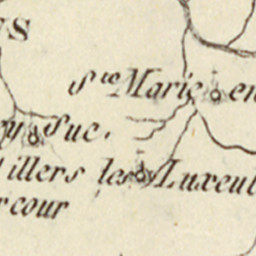 S
Ste Marie en
y Suc.
illers les Luxeul
cour